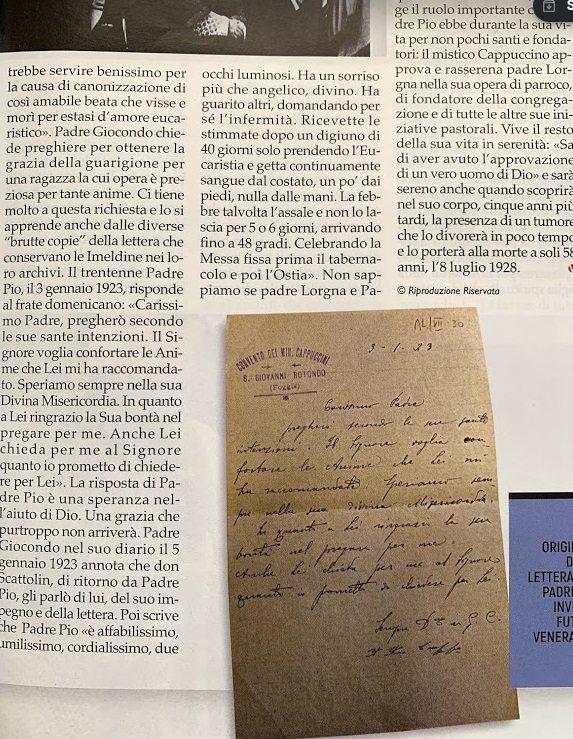 trebbe servire benissimo per
la causa di canonizzazione di
così amabile beata che visse e
morì per estasi d'amore euca-
ristico». Padre Giocondo chie-
de preghiere per ottenere la
grazia della guarigione per
una ragazza la cui opera è pre-
ziosa per tante anime. Ci tiene
molto a questa richiesta e lo si
apprende anche dalle diverse
"brutte copie" della lettera che
conservano le Imeldine nei lo-
ro archivi. Il trentenne Padre
Pio, il 3 gennaio 1923, risponde
al frate domenicano: «Carissi-
mo Padre, pregherò secondo
le sue sante intenzioni. Il Si-
gnore voglia confortare le Ani-
me che Lei mi ha raccomanda-
to. Speriamo sempre nella sua
Divina Misericordia. In quanto
a Lei ringrazio la Sua bontà nel
pregare per me. Anche Lei
chieda per me al Signore
quanto io prometto di chiede-
re per Lei». La risposta di Pa-
dre Pio è una speranza nel-
l'aiuto di Dio. Una grazia che
purtroppo non arriverà. Padre
Giocondo nel suo diario il 5
gennaio 1923 annota che don
Scattolin, di ritorno da Padre
Pio, gli parlò di lui, del suo im-
pegno e della lettera. Poi scrive
che Padre Pio «è affabilissimo,
umilissimo, cordialissimo, due
occhi luminosi. Ha un sorriso
più che angelico, divino. Ha
guarito altri, domandando per
sé l'infermità. Ricevette le
stimmate dopo un digiuno di
40 giorni solo prendendo l'Eu-
caristia e getta continuamente
sangue dal costato, un po' dai
piedi, nulla dalle mani. La feb-
bre talvolta l'assale e non lo la-
scia per 5 o 6 giorni, arrivando
fino a 48 gradi. Celebrando la
Messa fissa prima il taberna-
colo e poi l'Ostia». Non sap-
piamo se padre Lorgna e Pa-
ge il ruolo importante
dre Pio ebbe durante la sua vi-
ta per non pochi santi e fonda-
tori: il mistico Cappuccino ap-
prova e rasserena padre Lor-
gna nella sua opera di parroco,
di fondatore della congrega-
zione e di tutte le altre sue ini-
ziative pastorali. Vive il resto
della sua vita in serenità: «Sa
di aver avuto l'approvazione
di un vero uomo di Dio» e sarà
sereno anche quando scoprirà
nel suo corpo, cinque anni più
tardi, la presenza di un tumore
che lo divorerà in poco tempo
e lo porterà alla morte a soli 58
anni, l'8 luglio 1928.
© Riproduzione Riservata
3-1-23
CONVENTO DEI MIN. CAPPUCCINI
S. GIOVANNI ROTONDO
(Foggia)
Carissimo Padre
pregherò secondo le sue sante
intenzioni. Il Signore voglia con
fortare le Anime che Lei mi
ha raccomandate. Speriamo sem
pre nella sua divina Misericordia.
In quanto a Lei ringrazio la sua
bontà nel pregare per me.
Anche Lei chieda per me al Signore
quanto io prometto di chiedere per Lei.
ORIGI
D
LETTERA
PADRE
INV
FUT
VENERA